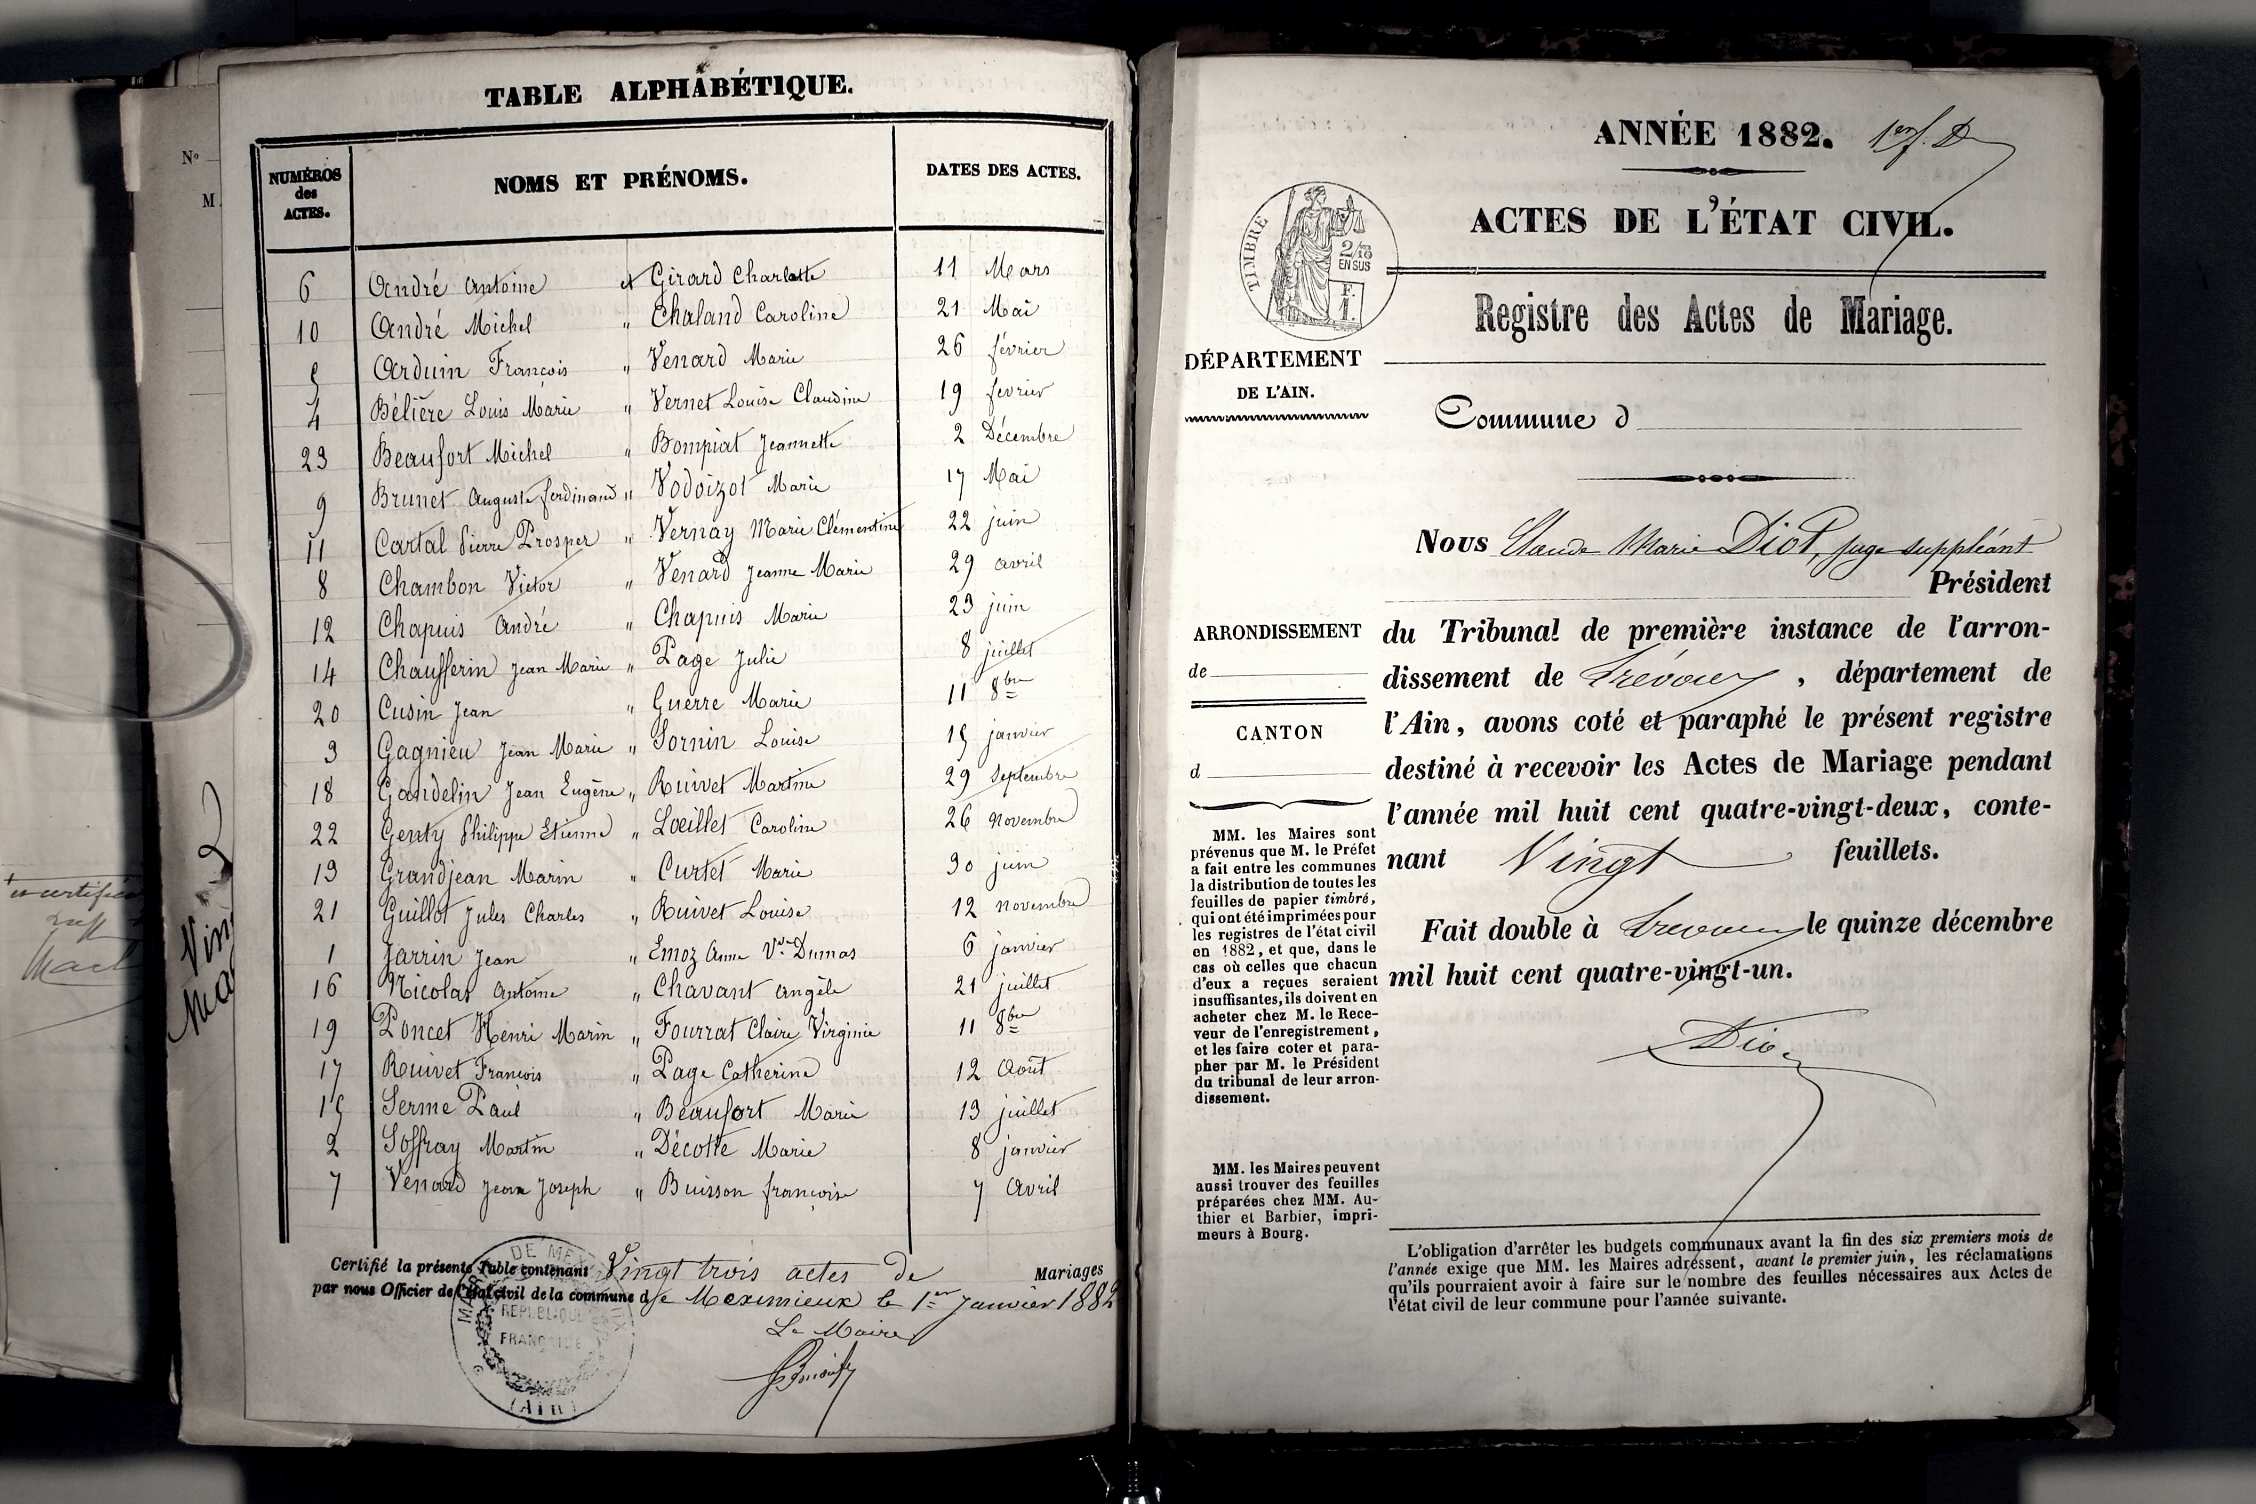 TABLE ALPHABÉTIQUE.
NUMÉROS des ACTES. NOMS ET PRÉNOMS. DATES DES ACTES.
6 André Antoine et Girard Charlotte 11 Mars
10 André Michel " Chaland Caroline 21 Mai
5 Arduin François " Venard Marie 26 février
4 Bélière Louis Marie " Vernet Louise Claudine 19 février
23 Beaufort Michel " Bompiat Jeannette 2 Décembre
9 Brunet Auguste ferdinand " Vodoizot Marie 17 Mai
11 Cartal Pierre Prosper " Vernay Marie Clémentine 22 juin
8 Chambon Victor " Venard Jeanne Marie 29 avril
12 Chapuis André " Chapuis Marie 23 juin
14 Chaufferin Jean Marie " Page Julie 8 juillet
20 Cusin Jean " Guerre Marie 11 8bre
3 Gagnieu Jean Marie " Sornin Louise 15 janvier
18 Gandelin Jean Eugène " Ruivet Martine 29 Septembre
22 Genty Philippe Etienne " Lœillet Caroline 26 novembre
13 Grandjean Marin " Curtet Marie 30 juin
21 Guillot Jules Charles " Ruivet Louise 12 novembre
1 Jarrin Jean " Emoz Anne Ve Dumas 6 janvier
16 Nicolas Antoine " Chavant Angèle 21 juillet
19 Poncet Henri Marin " Fourrat Claire Virginie 11 8bre
17 Ruivet François " Page Catherine 12 Août
15 Serme Paul " Beaufort Marie 13 juillet
2 Soffray Martin " Décotte Marie 8 janvier
7 Venard Jean Joseph " Buisson françoise 7 Avril
Certifié la présente Table contenant Vingt trois actes de Mariages
par nous Officier de l'état civil de la commune de Meximieux le 1er Janvier 1882
Le Maire
RÉPUBLIQUE
FRANÇAISE
(AIN)
N°
M.
ANNÉE 1882. 1er f. D
ACTES DE L'ÉTAT CIVIL.
TIMBRE
2/10
EN SUS
F.
1.
Registre des Actes de Mariage.
DÉPARTEMENT
DE L'AIN.
Commune d
Nous Claude Marie Diot, juge suppléant
Président
ARRONDISSEMENT
de
CANTON
d
du Tribunal de première instance de l'arron-
dissement de Trévoux, département de
l'Ain, avons coté et paraphé le présent registre
destiné à recevoir les Actes de Mariage pendant
l'année mil huit cent quatre-vingt-deux, conte-
nant Vingt feuillets.
Fait double à Trévoux le quinze décembre
mil huit cent quatre-vingt-un.
Diot
MM. les Maires sont
prévenus que M. le Préfet
a fait entre les communes
la distribution de toutes les
feuilles de papier timbré,
qui ont été imprimées pour
les registres de l'état civil
en 1882, et que, dans le
cas où celles que chacun
d'eux a reçues seraient
insuffisantes, ils doivent en
acheter chez M. le Rece-
veur de l'enregistrement,
et les faire coter et para-
pher par M. le Président
du tribunal de leur arron-
dissement.
MM. les Maires peuvent
aussi trouver des feuilles
préparées chez MM. Au-
thier et Barbier, impri-
meurs à Bourg.
L'obligation d'arrêter les budgets communaux avant la fin des six premiers mois de
l'année exige que MM. les Maires adressent, avant le premier juin, les réclamations
qu'ils pourraient avoir à faire sur le nombre des feuilles nécessaires aux Actes de
l'état civil de leur commune pour l'année suivante.